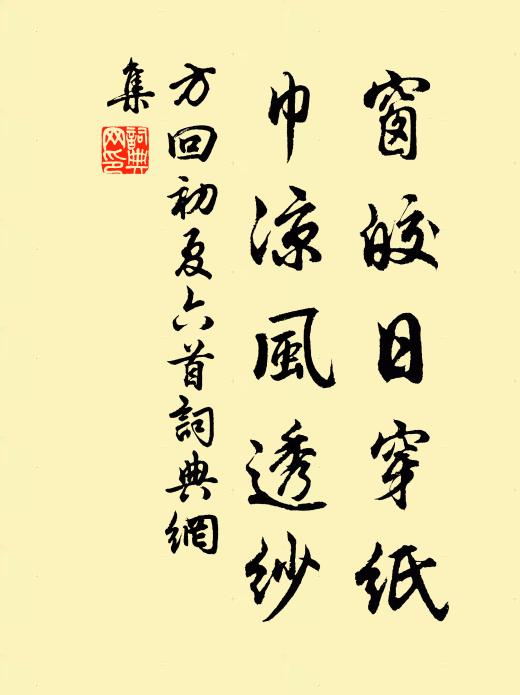 窗皎日穿紙
巾涼風透紗
方回初夏六首詞典網
集
詞典
网印